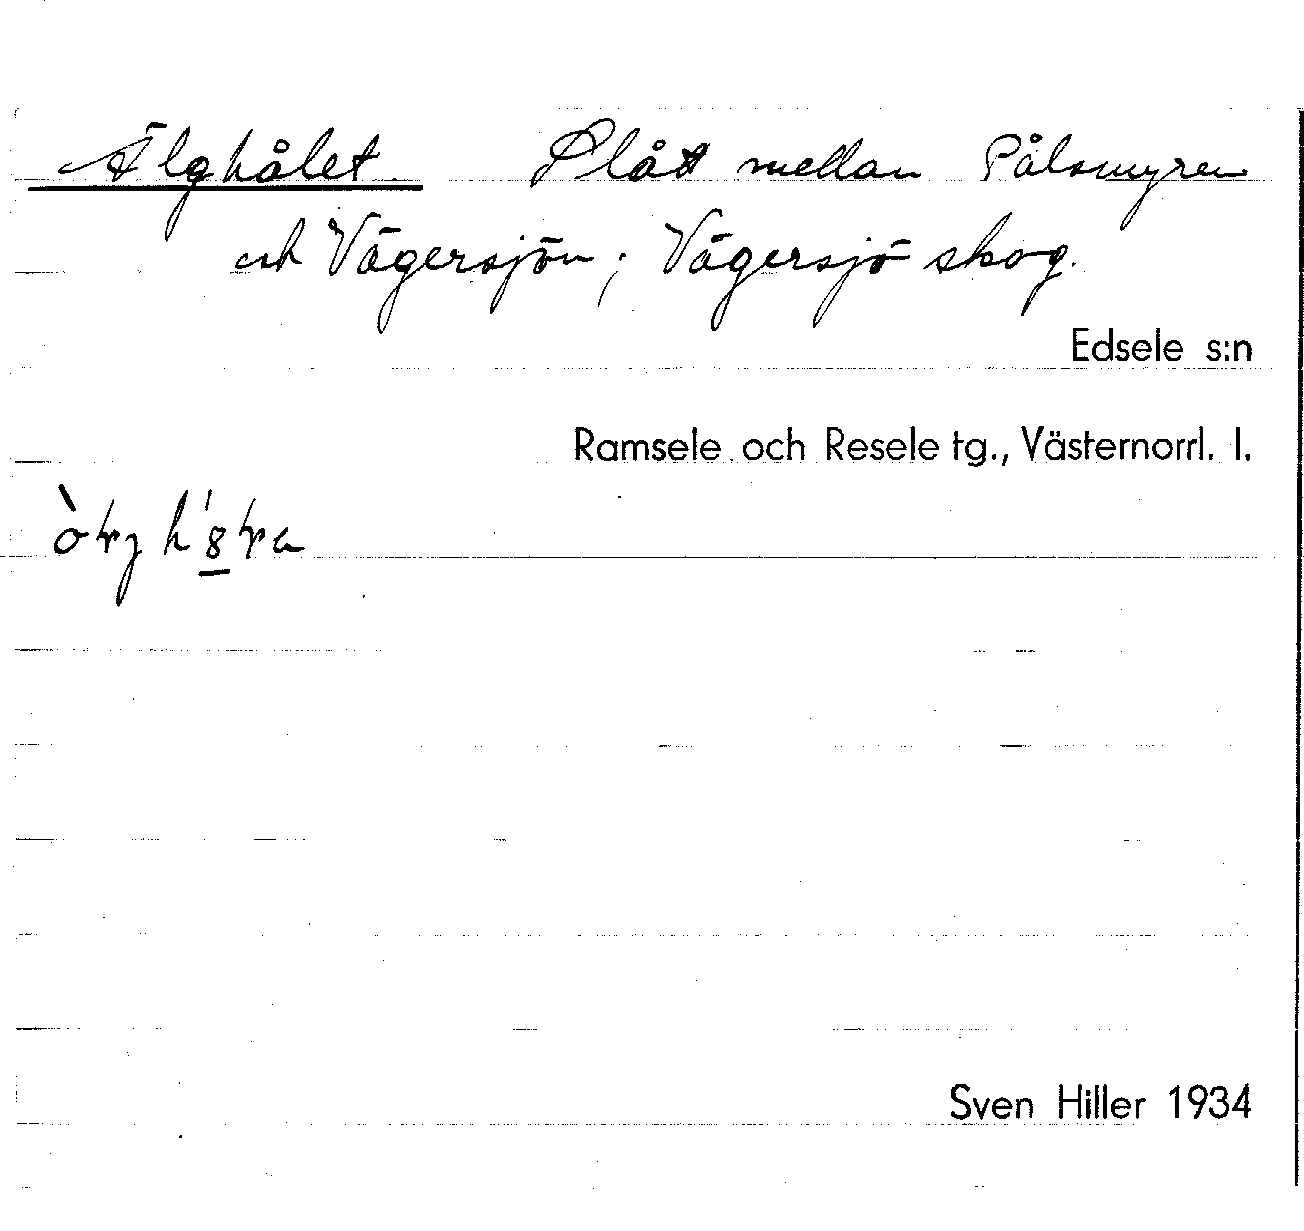 Älghålet. Slått mellan Pålsmyren
och Vågersjön; Vågersjö skog.
Edsele s:n
Ramsele och Resele tg., Västernorrl. l.
Sven Hiller 1934